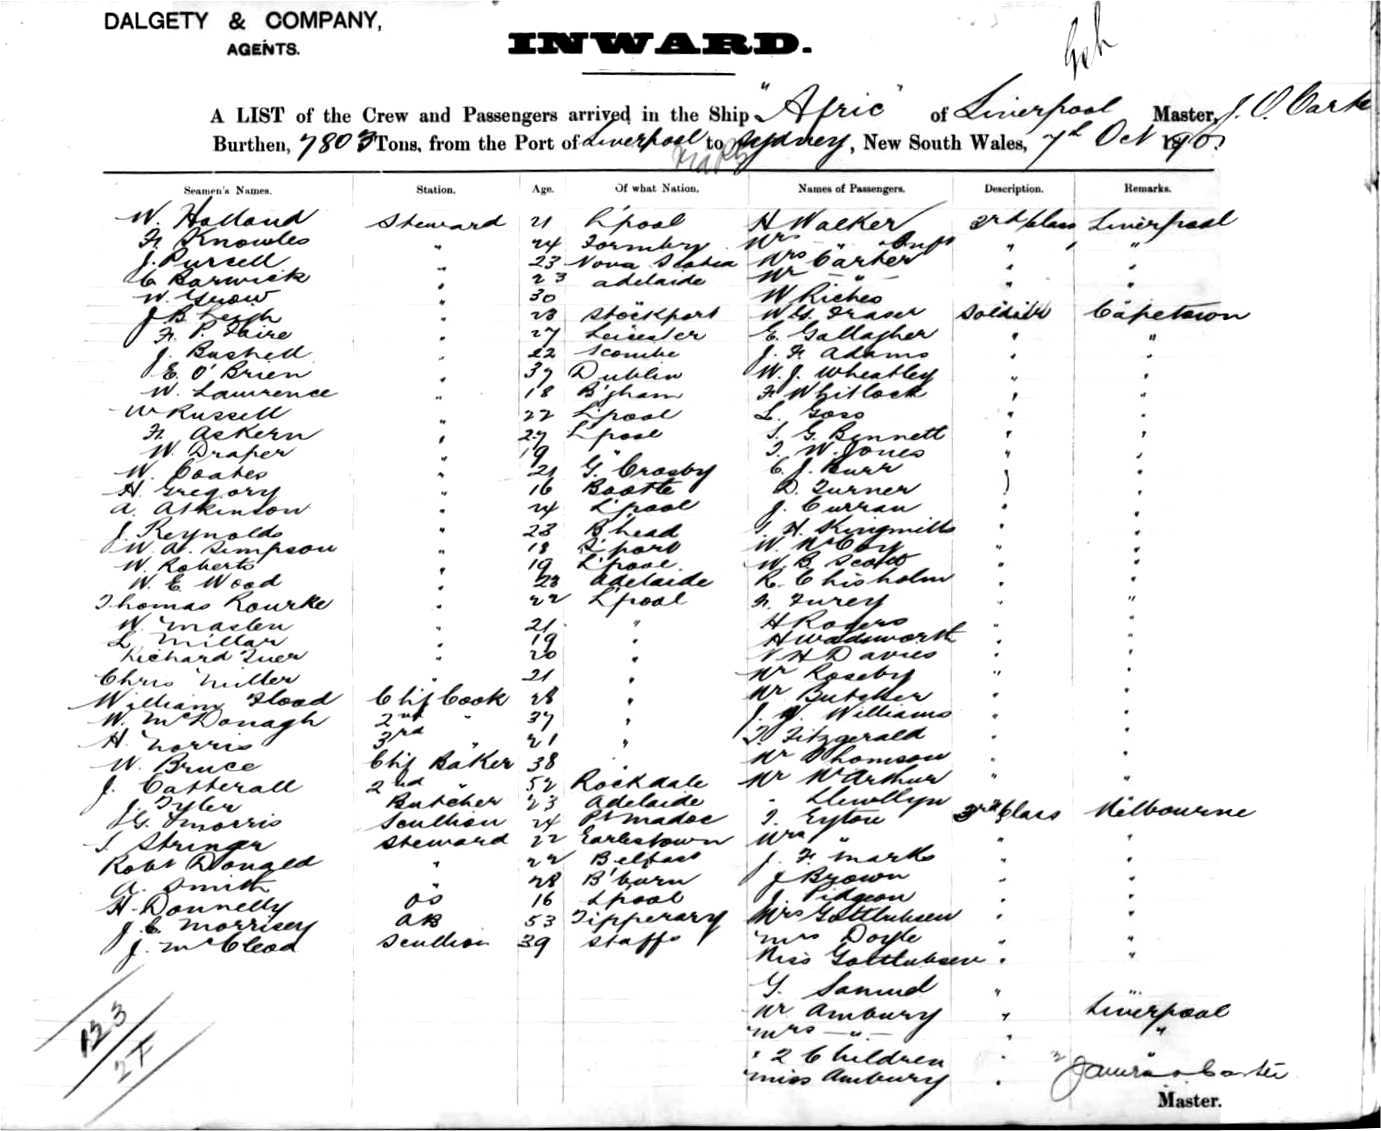 DALGETY & COMPANY,
AGENTS.
INWARD.
A LIST of the Crew and Passengers arrived in the Ship "Afric" of Liverpool Master, J. O. Carter
Burthen, 7803 Tons, from the Port of Liverpool to Sydney, New South Wales, 7th Oct 190
Seamen's Names. Station. Age. Of what Nation. Names of Passengers. Description. Remarks.
W. Holland Steward 21 L'pool H Walker 3rd Class Liverpool
F. Knowles " 24 Formby Mrs " " "
J. Pursell " 23 Nova Scotia Mrs Carter " "
C Barwick " 23 Adelaide Mr " " "
W. Snow " 30 W Riches
J B Leigh " 23 Stockport W G Fraser Soldier Capetown
F. P. Faire 27 Leicester E. Gallagher " "
J. Bushell " 22 Scombe J. F. Adams " "
E. O'Brien " 37 Dublin W. J. Wheatley " "
W. Lawrence " 18 B'gham F Whitlock " "
W Russell " 22 L'pool L. Goss " "
F. Askern " 27 L'pool S. G. Bennett " "
W. Draper " 19 " T. W. Jones " "
W. Coates " 21 G. Crosby C. J. Burr "
H. Gregory " 16 Bootle D. Turner " "
A. Atkinson " 24 L'pool J. Curran " "
J. Reynolds " 23 B'head T. H. Kingmill " "
W. A. Simpson " 18 S'port W. McCoy " "
W. Roberts " 19 L'pool W. B. Scott " "
W. E. Wood " 23 Adelaide R. Chisholm " "
Thomas Rourke " 22 L'pool F. Furey " "
W. Maslen " 21 " H Rogers " "
L. Millar " 19 " H Wadsworth " "
Richard Tuer " 20 " V H Davies " "
Chris Miller " 21 " Mr Roseby " "
William Flood Chif Cook 28 " Mr Butcher " "
W. McDonagh 2nd " 37 " J. J. Williams " "
H. Norris 3rd " 21 " T Fitzgerald " "
W. Bruce Chif Baker 38 " Mr Thomson " "
J. Catterall 2nd " 52 Rockdale Mr McArthur " "
J. Tyler Butcher 23 Adelaide " Llewellyn
J G. Morris Scullion 24 Pt Madoc T. Eyton 3rd Class Melbourne
S Stringer Steward 22 Earlestown Mrs " " "
Robt Donald " 22 Belfast J. F. Marks " "
A. Smith " 28 B'burn J Brown " "
H. Donnelly OS 16 Lpool J. Pidgeon " "
J. C. Morrisey AB 53 Tipperary Mrs Gottlubsen " "
J. McCleod Scullion 39 Staffs Mrs Doyle " "
Miss Gottlubsen " "
G. Samuel " "
Mr Ambury " Liverpool
Mrs " " "
" 2 Children " "
Miss Ambury "
123
27
Master.